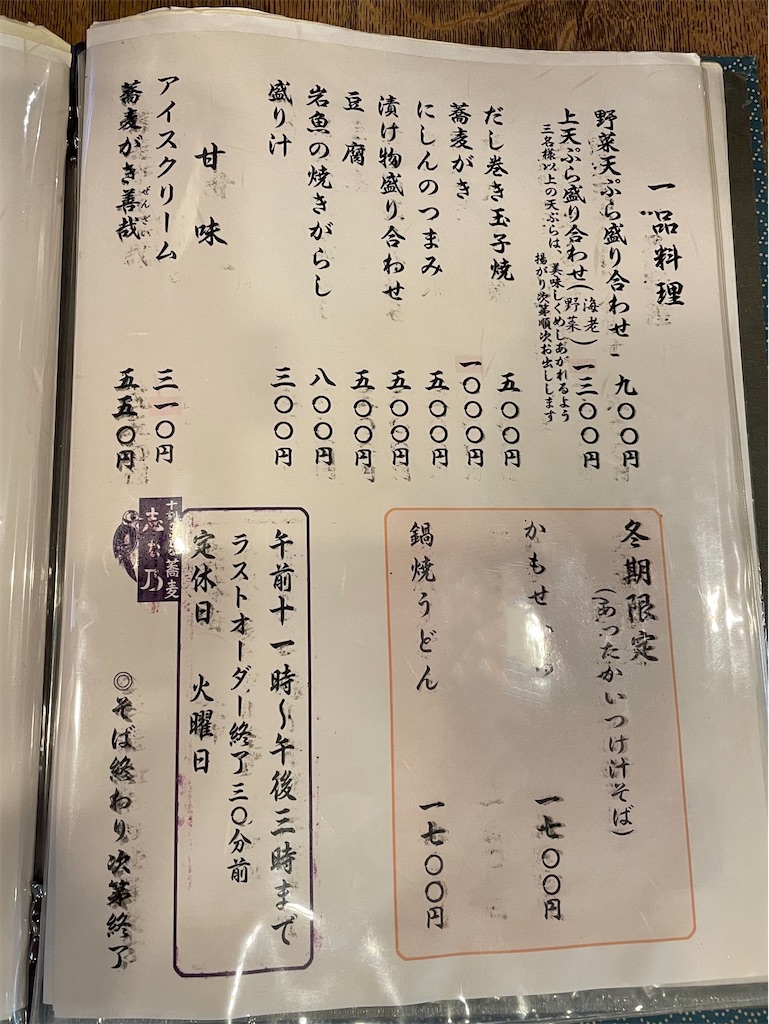 一品料理
野菜天ぷら盛り合わせ 九〇〇円
上天ぷら盛り合わせ(海老野菜) 一三〇〇円
三名様以上の天ぷらは、美味しくめしあがれるよう
揚がり次第順次お出しします
だし巻き玉子焼 五〇〇円
蕎麦がき 一〇〇〇円
にしんのつまみ 五〇〇円
漬け物盛り合わせ 五〇〇円
豆腐 五〇〇円
岩魚の焼きがらし 八〇〇円
盛り汁 三〇〇円
甘味
アイスクリーム 三一〇円
蕎麦がき善哉 五五〇円
ぜんざい
冬期限定
(あったかいつけ汁そば)
かもせ 一七〇〇円
鍋焼うどん 一七〇〇円
午前十一時〜午後三時まで
ラストオーダー終了三〇分前
定休日 火曜日
蕎麦
志な乃
◎そば終わり次第終了